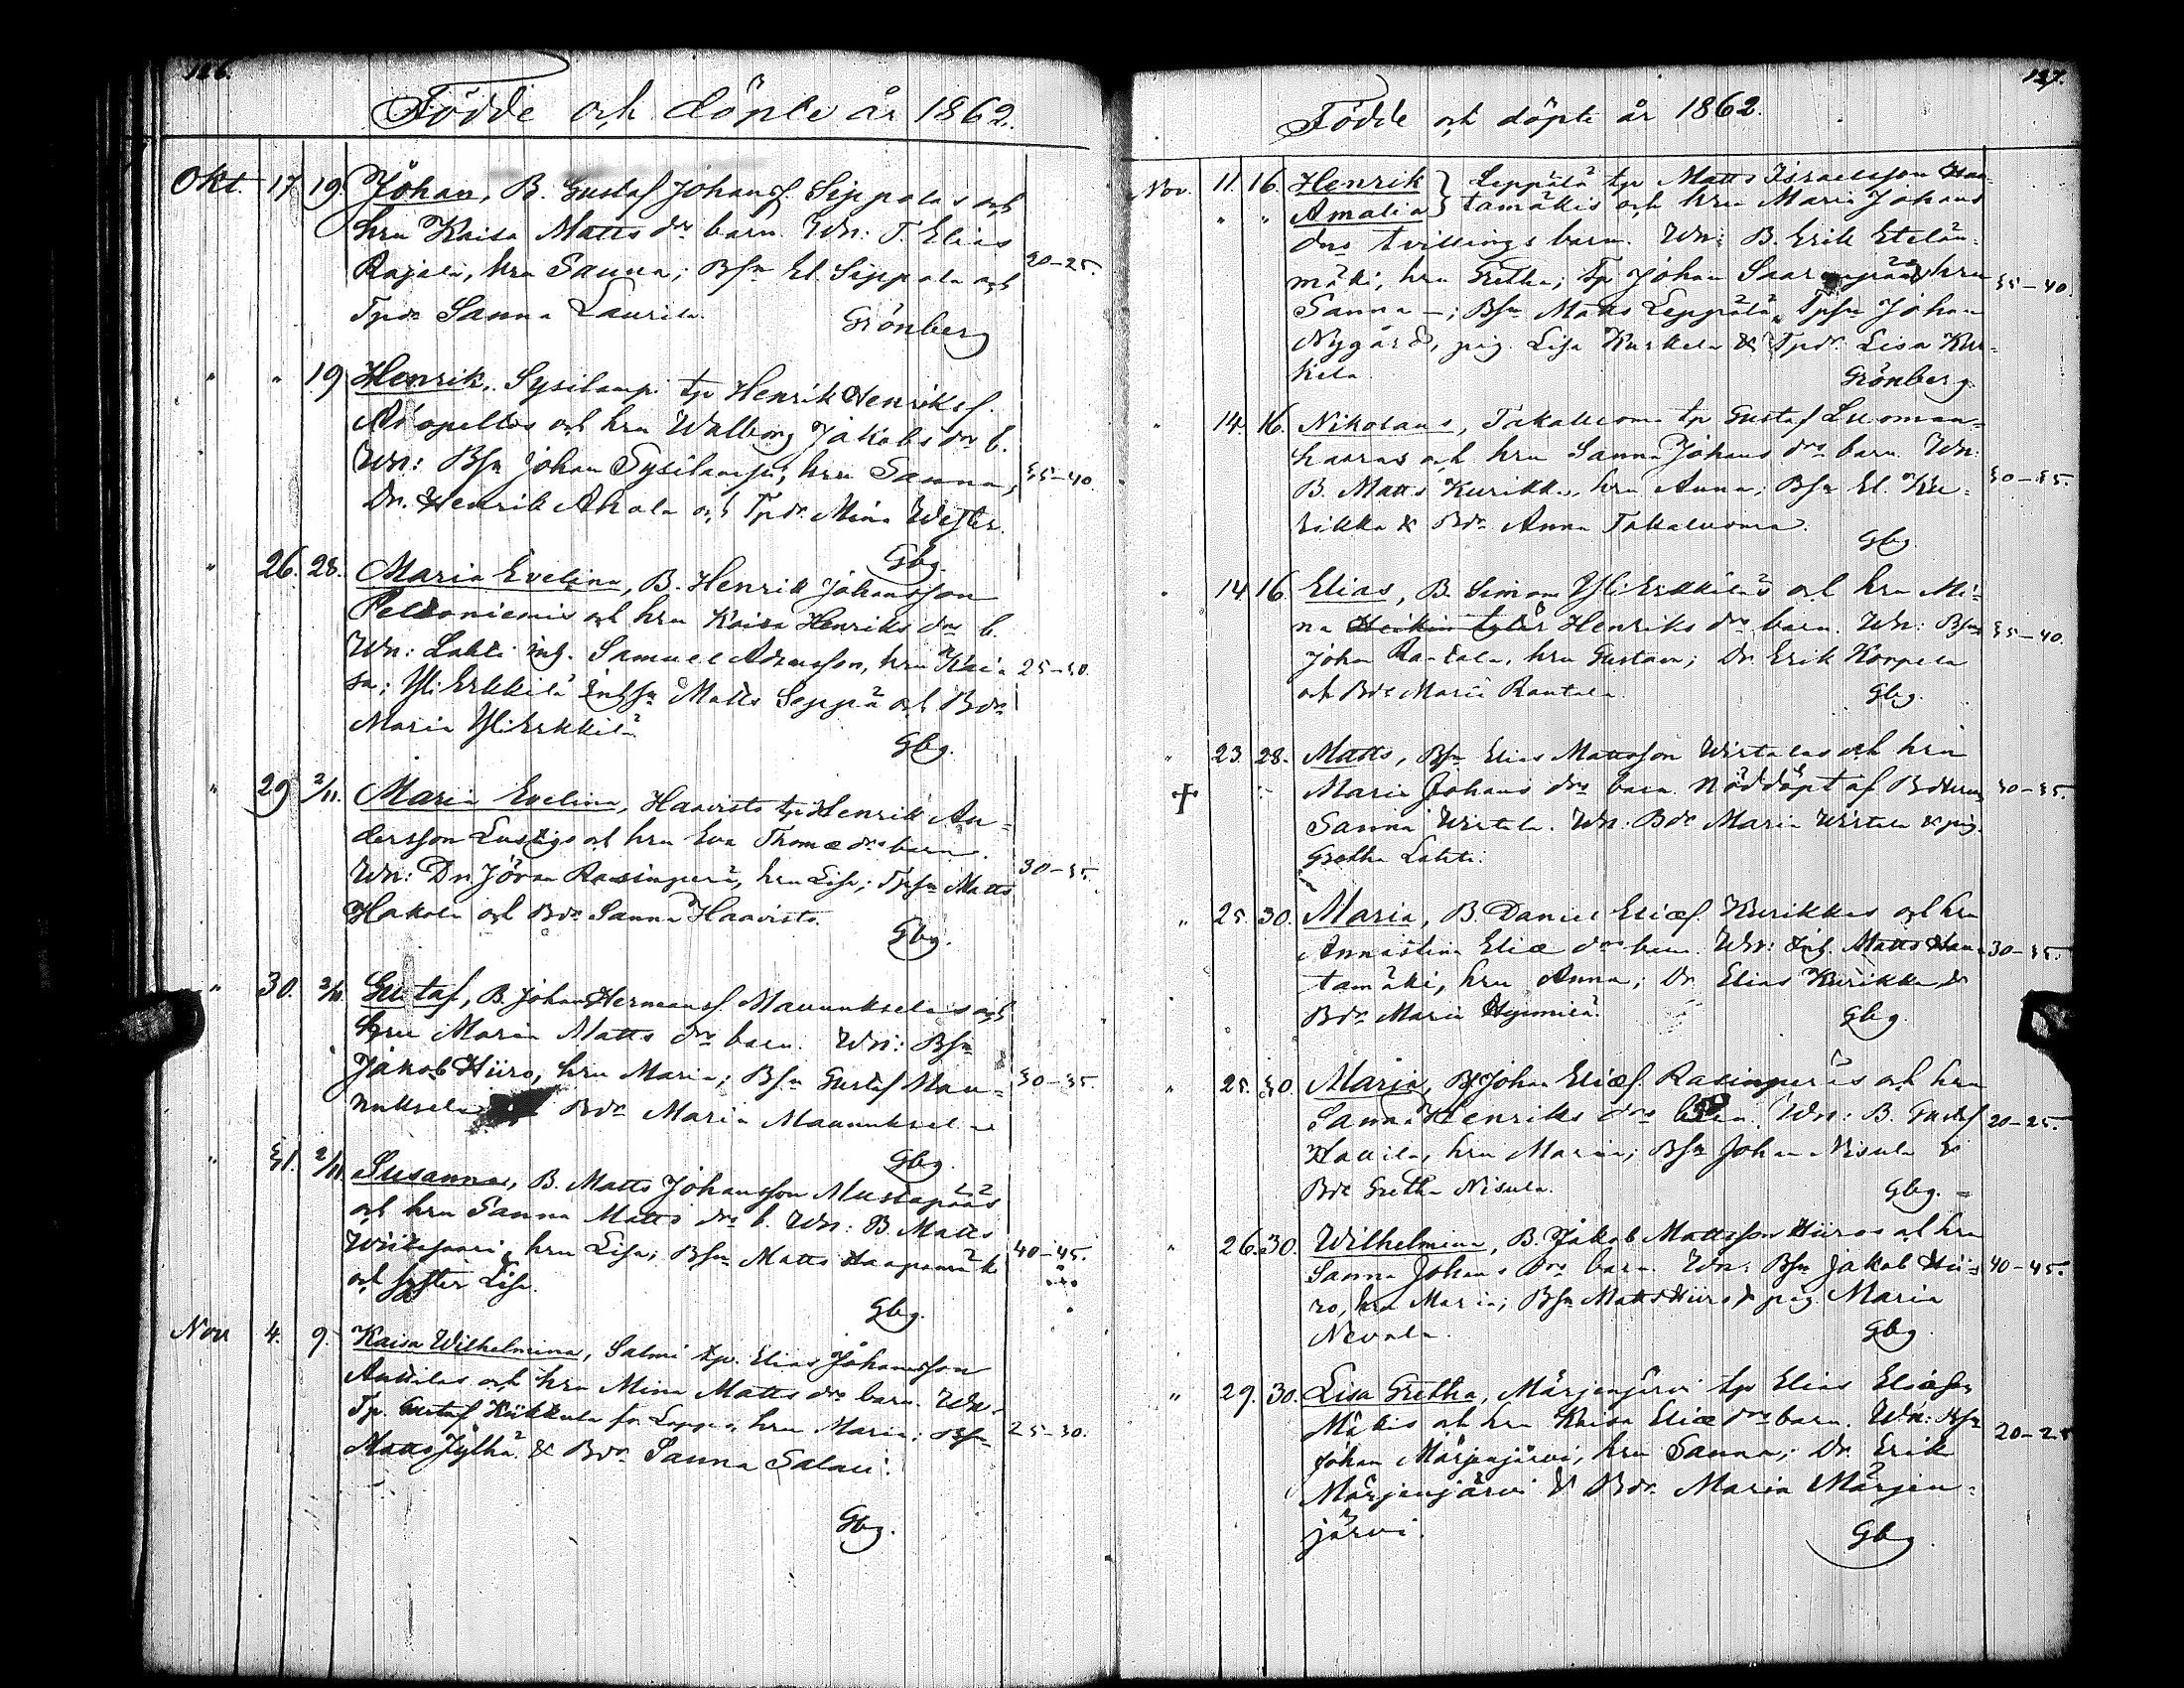 126.
Födde och döpte år 1862.
Okt. 17. 19. Johan, B. Gustaf Johanss. Sippolas och
hru Kaisa Matts drs barn. Wn: T. Elias
Rajala, hru Sanna; Bsn El. Sippola och 20-25.
Tpdr Sanna Laurila.
Grönberg
" " 19 Henrik, Sysilampi tp Henrik Henrikss.
och hru Walborg Jakobs dr b.
Wn: Bsn Johan Sysilampi, hru Sanna, 35-40.
Dr. Henrik Ahola och Tpdr. Mina
Gbg.
" 26. 28. Maria Evelina, B. Henrik Johansson
Peltoniemis och hru Kaisa Henriks drs b.
Wn: Lahti inh. Samuel Adamsson, hru Kai- 25-30.
sa; Yli Erkkilä inhsn Matts Seppä och Bdr
Maria Yli Erkkilä
Gbg.
" 29 2/11. Maria Evelina, Haavisto tp Henrik An-
dersson Lustigs och hru Eva Thomæ drs barn.
Wn: Dn Jöran Rasinperä, hru Lisa; Tpsn Matts 30-35.
Hakola och Bdr Sanna Haavisto.
Gbg.
" 30. 2/11. Gustaf, B. Johan Hermanss. Maunukselas och
hru Maria Matts drs barn. Wn: Bsn
Jakob Hiiro, hru Maria; Bsn Gustaf Mau- 30-35.
nuksela Bdr Maria Maunuksela
Gbg.
" 31. 2/11 Susanna, B. Matts Johansson Mustapääs
och hru Sanna Matts drs b. Wn: B. Matts
hru Lisa; Bsn Matts Haapamäki 40-45.
och syster Lisa.
Gbg.
Nov 4. 9. Kaisa Wilhelmina, Salmi tp. Elias Johansson
Anttilas och hru Mina Matts drs barn. Wn.
Tp. Gustaf hru Maria; Bsn 25-30.
Matts Jylhä & Bdr. Sanna Salmi.
Gbg.
127.
Födde och döpte år 1862.
Nov. 11. 16. Henrik } Leppälä tp Matts Israelsson Han-
" " Amalia } tamäkis och hru Maria Johans
drs tvillingsbarn. Wn: B. Erik Etelän-
mäki, hru Gretha; tp Johan Saarenpää, hru 35-40.
Sanna –; Bsn Matts Leppälä, Tpsn Johan
Nygård, pig. Lisa Kurkela & Tpdr. Lisa Kur-
kela
Grönberg
" 14. 16. Nikolaus, Takaluoma tp Gustaf Luoman-
haaras och hru Sanna Johans drs barn. Wn:
B. Matts Kurikka, hru Anna; Bsn El. Ku- 30-35.
rikka & Bdr Anna Takaluoma.
Gbg.
" 14. 16. Elias, B. Simon Yli Erkkiläs och hru Mi-
na Henriks drs barn. Wn: Bsn 35-40.
Johan Rantala, hru Gustava; Dr. Erik Korpela
och Bdr Maria Rantala.
Gbg.
" 23. 28. Matts, Bsn Elias Mattsson Wirtalas och hru
+ Maria Johans drs barn. Nöddöpt af Bdhrun 30-35.
Sanna Wirtala. Wn: Bdr Maria Wirtala & pig.
Gretha Lahti.
" 25. 30. Maria, B. Daniel Eliæs. Kurikkas och hru
Annastina Eliæ drs barn. Wn: Inh. Matts Han- 30-35.
tamäki, hru Anna; Dr. Elias Kurikka &
Bdr Maria
Gbg.
" 25. 30. Maria, B. Johan Eliæs. Rasinperäs och hru
Sanna Henriks drs barn. Wn: B. Gustaf 20-25.
hru Maria; Bsn Johan Nisula &
Bdr Gretha Nisula.
Gbg.
" 26. 30. Wilhelmina, B. Jakob Mattsson Hiiros och hru
Sanna Johans drs barn. Wn: Bsn Jakob Hii- 40-45.
ro, hru Maria; Bsn Matts Hiiro & pig. Maria
Nevala.
Gbg
" 29. 30. Lisa Gretha, Märjenjärvi tp Elias Eliæson
Mäkis och hru Kaisa Eliæ drs barn. Wn: Bsn
Johan Märjenjärvi, hru Sanna; Dr. Erik 20-25
Märjenjärvi & Bdr. Maria Märjen-
järvi.
Gbg